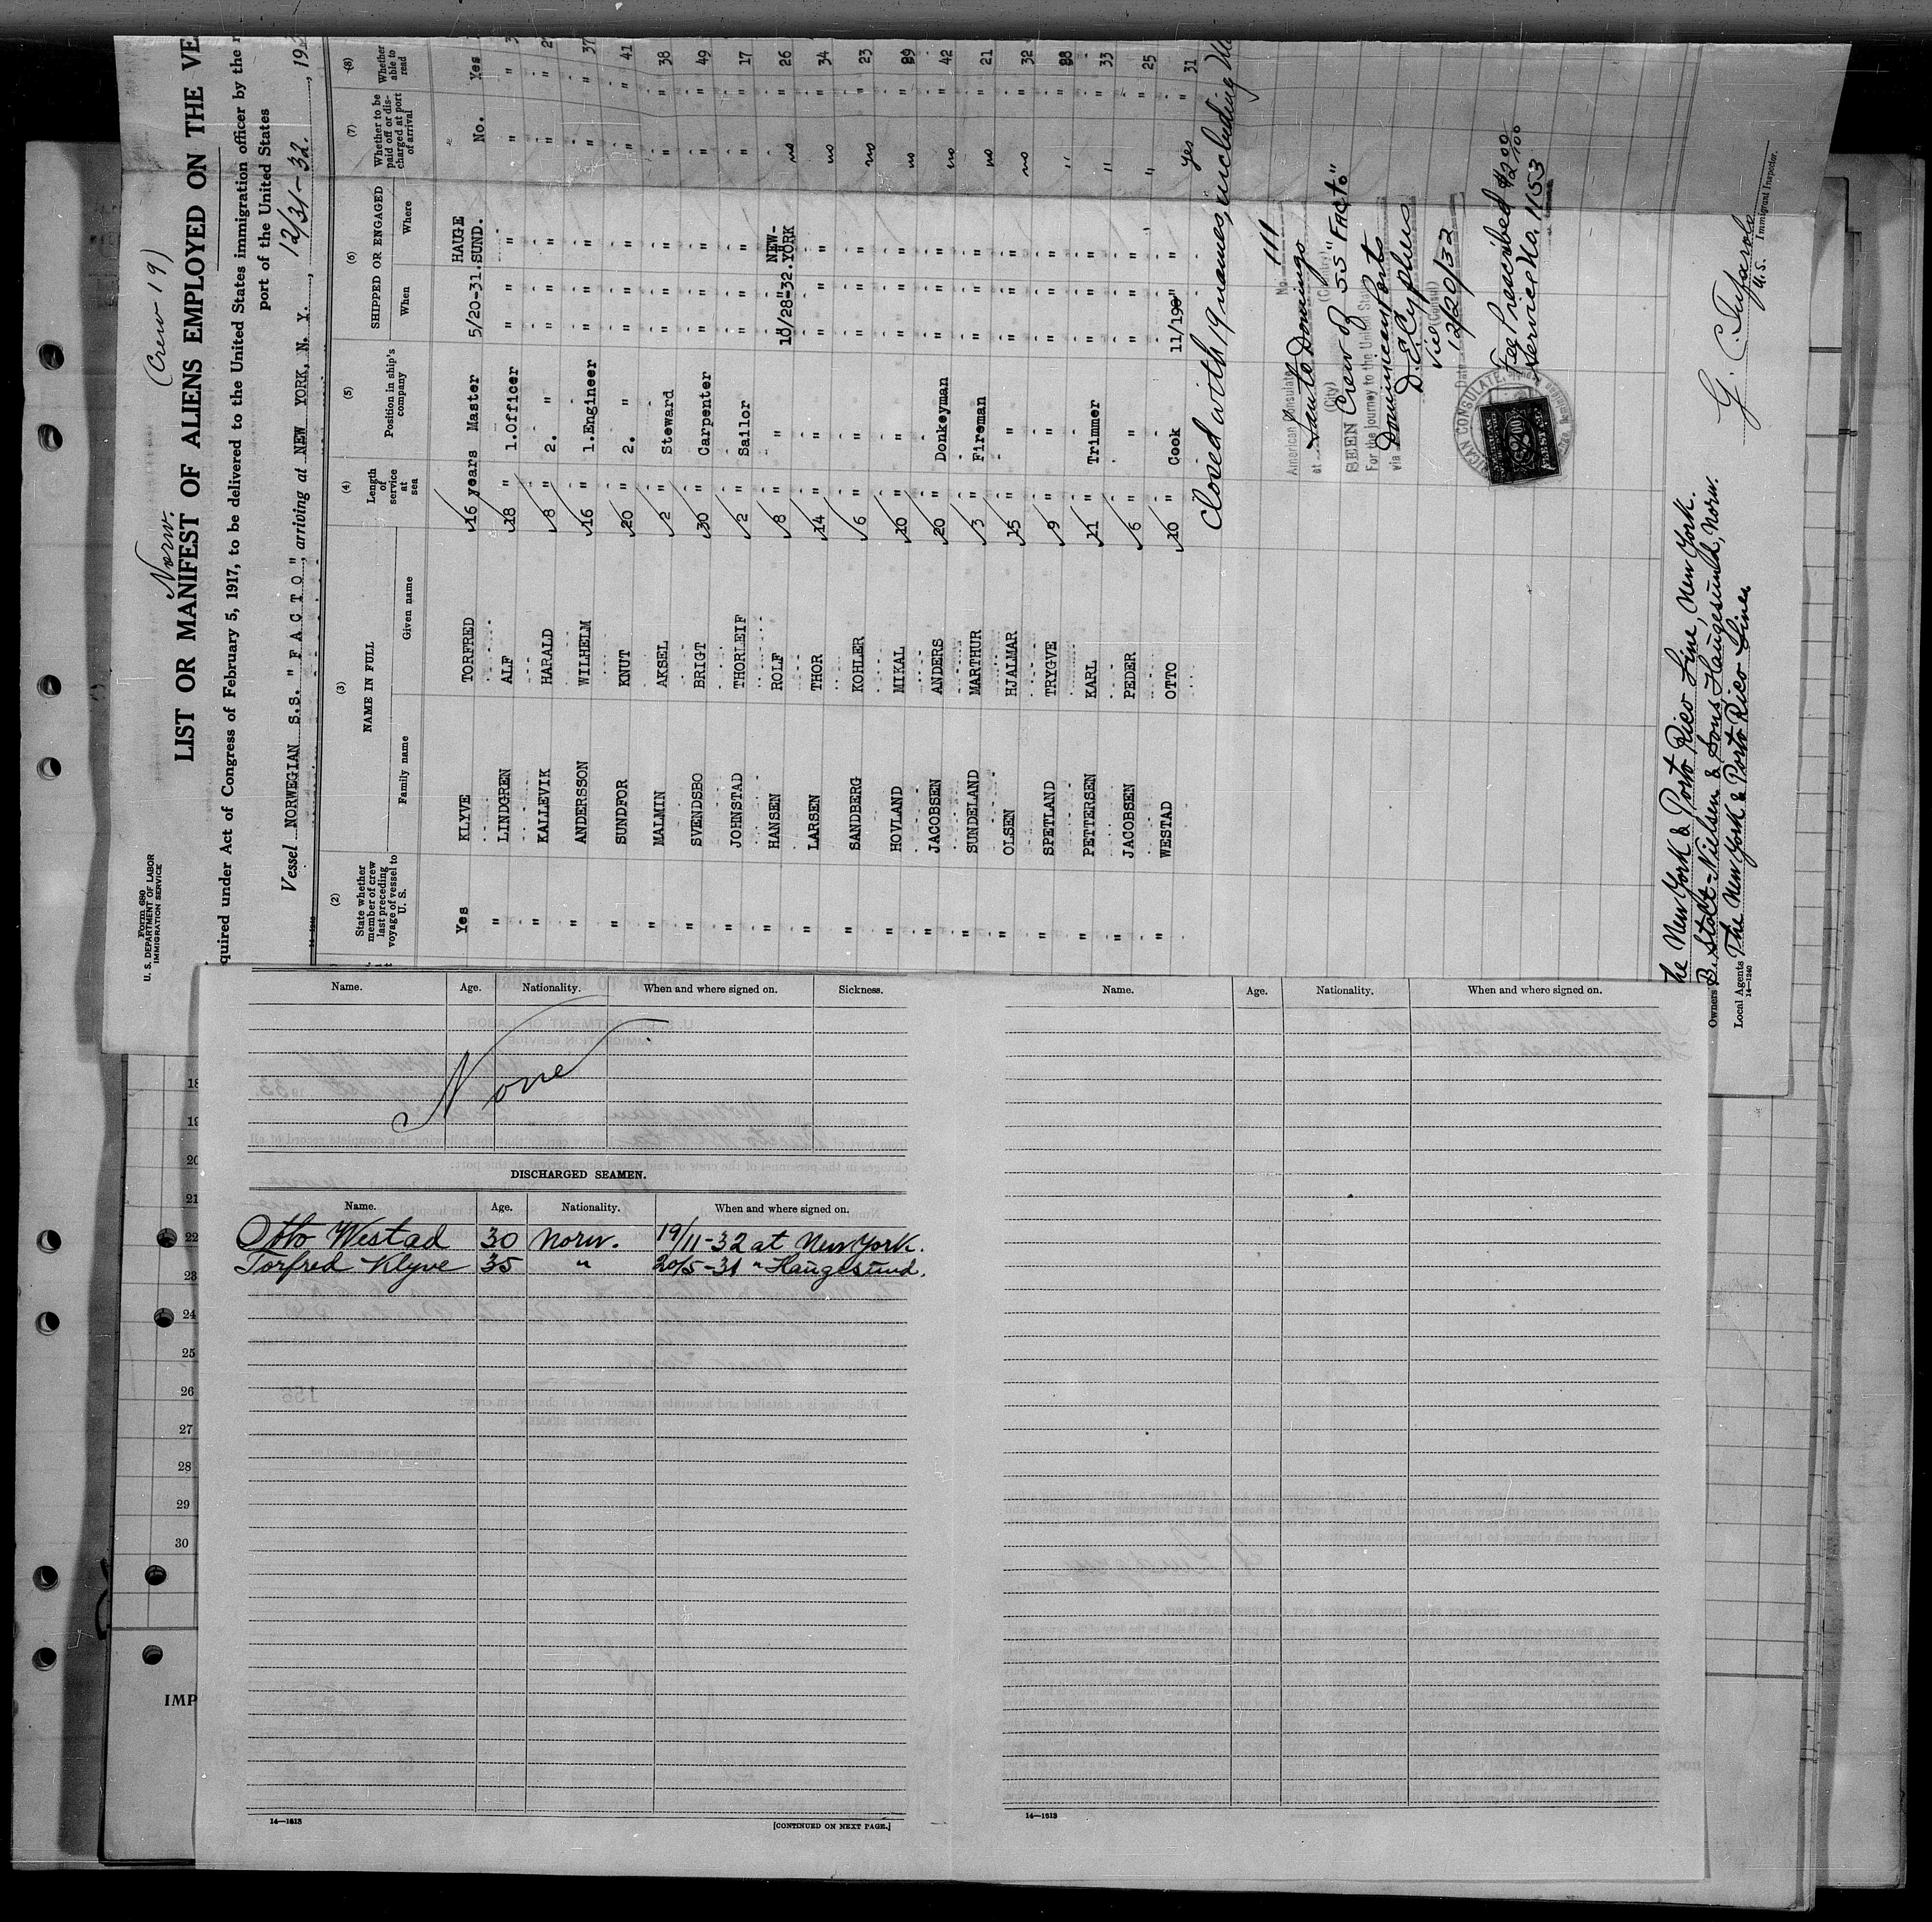 Form 680
U. S. DEPARTMENT OF LABOR
IMMIGRATION SERVICE
Norw. (Crew 19)
LIST OR MANIFEST OF ALIENS EMPLOYED ON THE VE
quired under Act of Congress of February 5, 1917, to be delivered to the United States immigration officer by the r
port of the United States
Vessel NORWEGIAN S.S. " F A C T O ", arriving at NEW YORK, N. Y. , 12/31-32. , 193
(2) (3) (4) (5) (6) (7) (8)
State whether member of crew last preceding voyage of vessel to U. S.
NAME IN FULL
Family name Given name
Length of service at sea
Position in ship's company
SHIPPED OR ENGAGED
When Where
Whether to be paid off or discharged at port of arrival
Whether able to read
Yes KLYVE TORFRED 16 years Master 5/20-31. HAUGE SUND. No. Yes
" LINDGREN ALF 18 " 1.Officer " " " " " 3
" KALLEVIK HARALD 8 " 2. " " " " " " 27
" ANDERSSON WILHELM 16 " 1.Engineer " " " " " 37
" SUNDFOR KNUT 20 " 2. " " " " " " 41
" MALMIN AKSEL 2 " Steward " " " " " 38
" SVENDSBO BRIGT 30 " Carpenter " " " " " 49
" JOHNSTAD THORLEIF 2 " Sailor " " " " " 17
" HANSEN ROLF 8 " " 10/28-32. NEW-YORK no " 26
" LARSEN THOR 14 " " " " " no " 34
" SANDBERG KOHLER 6 " " " " " no " 23
" HOVLAND MIKAL 10 " " " " " no "
" JACOBSEN ANDERS 20 " Donkeyman " " " no " 42
" SUNDELAND MARTHUR 3 " Fireman " " " no " 21
" OLSEN HJALMAR 15 " " " " " no " 32
" SPETLAND TRYGVE 9 " " " " " " "
" PETTERSEN KARL 11 " Trimmer " " " " " 33
" JACOBSEN PEDER 6 " " " " " " " 25
" WESTAD OTTO 10 " Cook 11/19 " " yes " 31
Closed with 19 names, including
American Consulate No. 111
at Santo Domingo
(City) (Country)
SEEN Crew of SS "Facto"
For the journey to the United States
via Dominican Ports
Vice (Consul)
Date 12/20/32
Fee Prescribed $2.00
Service No. 1153
AMERICAN CONSULATE
G. C. Tufarolo
U.S. Immigrant Inspector.
The New York & Porto Rico Line, New York.
Owners B. Stolt-Nielsen & Sons, Haugesund, Norw.
Local Agents The New York & Porto Rico Line.
14—1240
Name. Age. Nationality. When and where signed on. Sickness.
None
DISCHARGED SEAMEN.
Name. Age. Nationality. When and where signed on.
Otto Westad 30 Norw. 19/11-32 at New York.
Torfred Klyve 35 " 20/5-31 " Haugesund.
14—1613
[CONTINUED ON NEXT PAGE.]
Name. Age. Nationality. When and where signed on.
14—1613
18
19
20
21
22
23
24
25
26
27
28
29
30
IMP